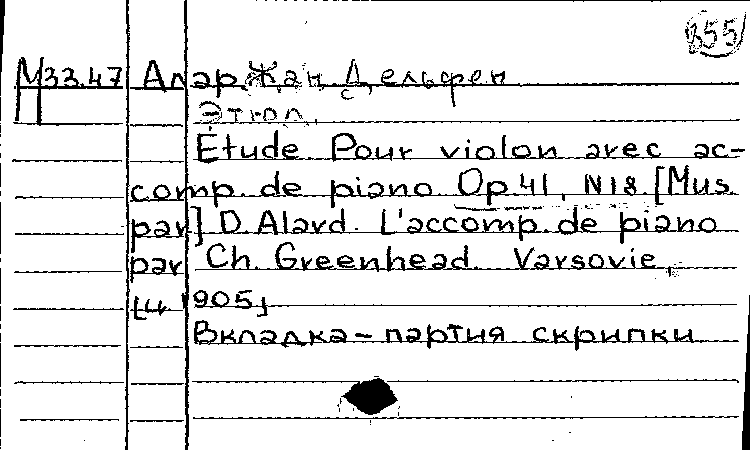 855
М33.47 Алар, Жан Дельфен
Этюд.
Étude Pour violon avec ac-
comp. de piano Op. 41, N18. [Mus.
par] D. Alard. L'accomp. de piano
par Ch. Greenhead. Varsovie,
[ц. 1905]
Вкладка - партия скрипки